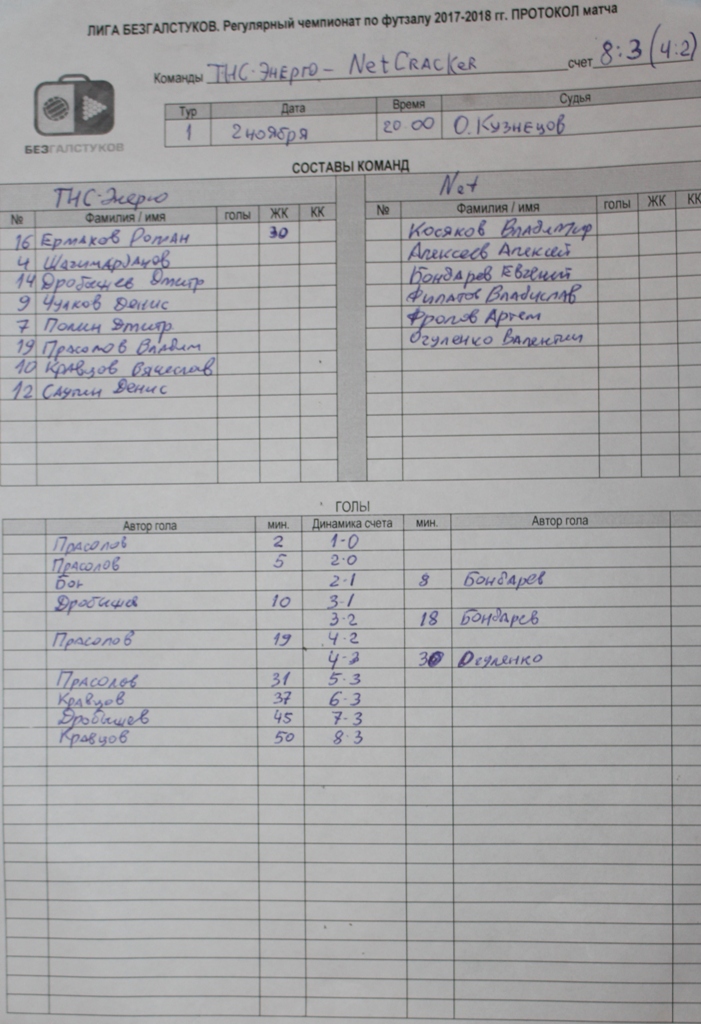 ЛИГА БЕЗГАЛСТУКОВ. Регулярный чемпионат по футзалу 2017-2018 гг. ПРОТОКОЛ матча
Команды ТНС-Энерго - NetCracker счет 8:3 (4:2)
БЕЗГАЛСТУКОВ
Тур Дата Время Судья
1 2 ноября 20.00 О. Кузнецов
СОСТАВЫ КОМАНД
ТНС-Энерго Net
№ Фамилия / имя голы ЖК КК № Фамилия / имя голы ЖК КК
16 Ермаков Роман 30 Косяков Владимир
4 Алексеев Алексей
14 Дробышев Дмитр Бондарев Евгений
9 Чулков Денис Филатов Владислав
7 Полин Дмитр Фролов Артем
19 Прасолов Вадим Огуленко Валентин
10 Кравцов Вячеслав
12 Денис
ГОЛЫ
Автор гола мин. Динамика счета мин. Автор гола
Прасолов 2 1-0
Прасолов 5 2-0
2-1 8 Бондарев
Дробышев 10 3-1
3-2 18 Бондарев
Прасолов 19 4-2
4-3 30 Огуленко
Прасолов 31 5-3
Кравцов 37 6-3
Дробышев 45 7-3
Кравцов 50 8-3